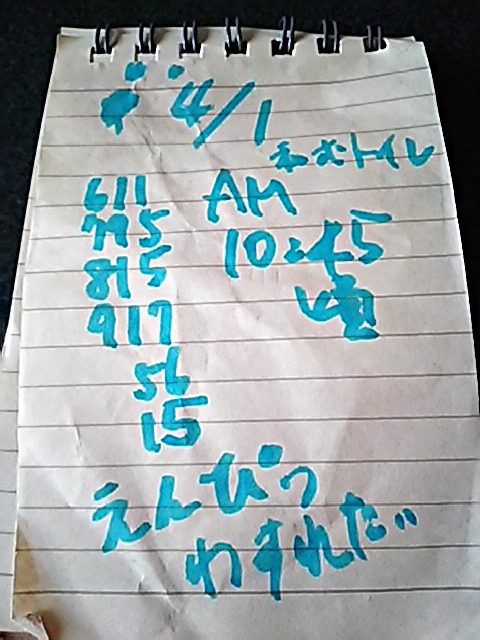 4/1
トイレ
611 AM
795 10:45
815 頃
917
56
15
えんぴつ
わすれた…